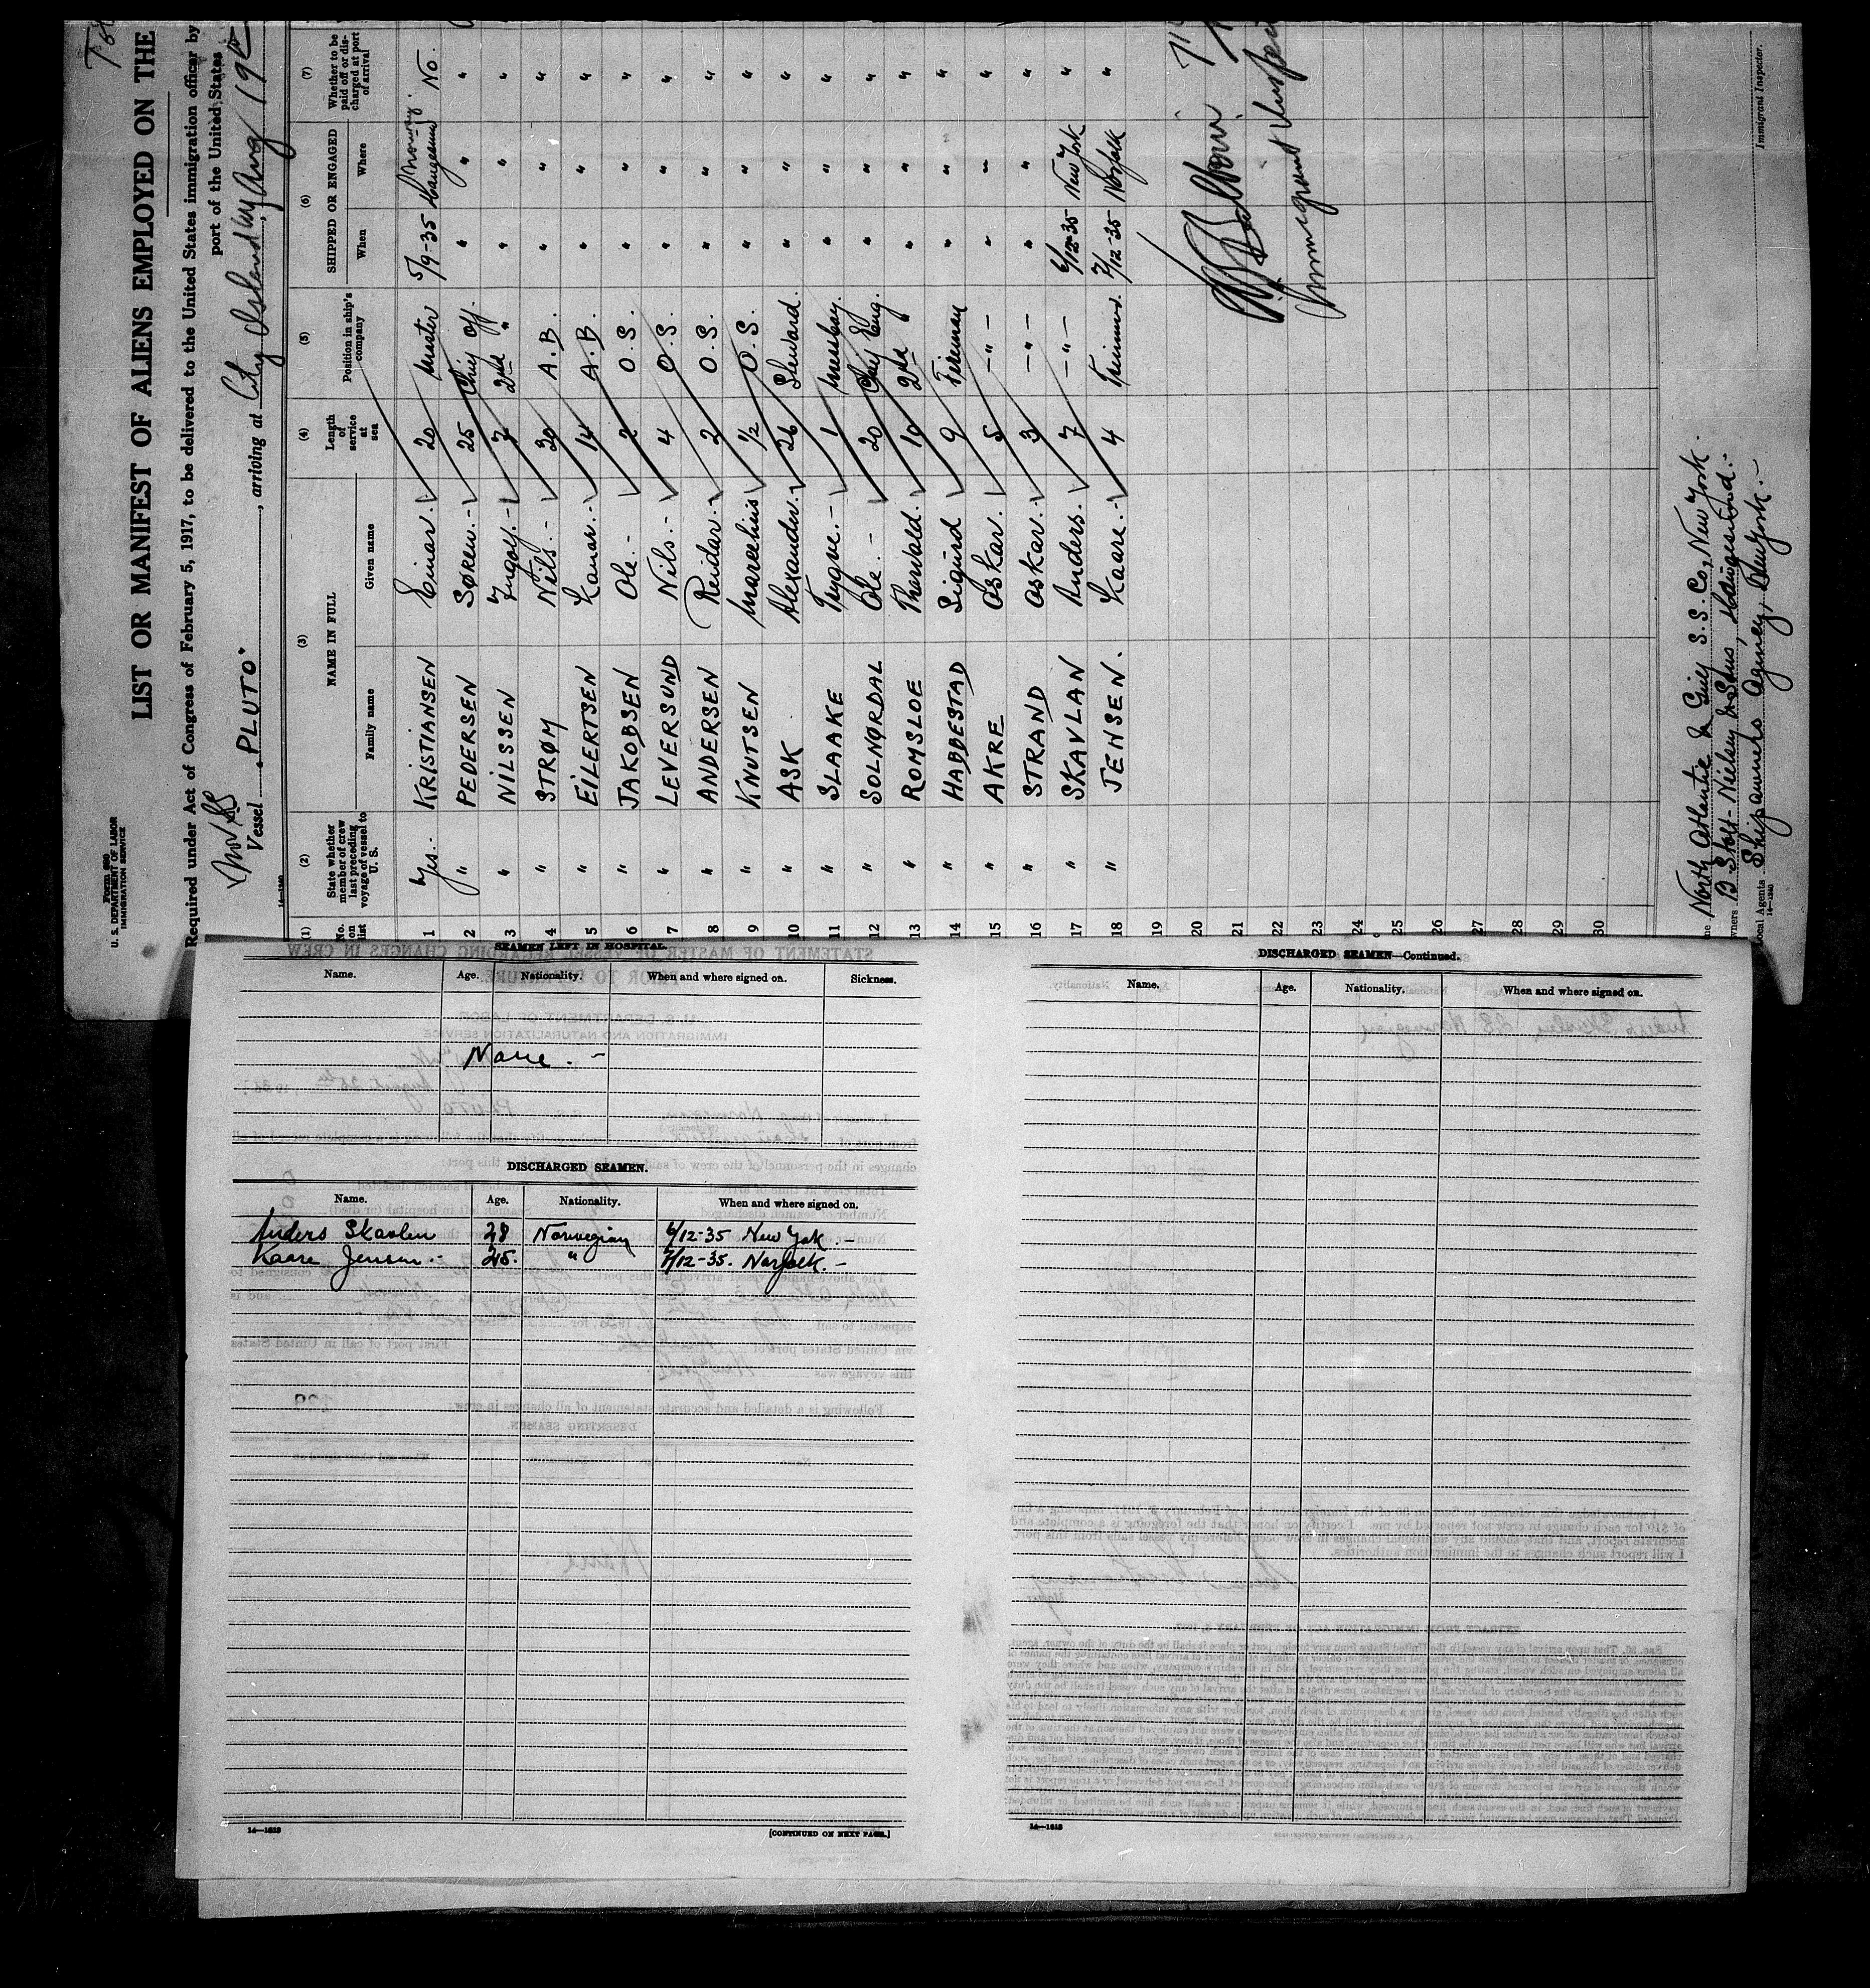 Form 680
U. S. DEPARTMENT OF LABOR
IMMIGRATION SERVICE
LIST OR MANIFEST OF ALIENS EMPLOYED ON THE
Required under Act of Congress of February 5, 1917, to be delivered to the United States immigration officer by
port of the United States
Vessel "PLUTO" , arriving at City Island NY Aug 19
14—1240
(1) (2) (3) (4) (5) (6) (7)
No. on list
State whether member of crew last preceding voyage of vessel to U. S.
NAME IN FULL
Family name Given name
Length of service at sea
Position in ship's company
SHIPPED OR ENGAGED
When Where
Whether to be paid off or discharged at port of arrival
1 Yes.- KRISTIANSEN Einar. 20 Master 5/9-35 Haugesund Norway. No.
2 " PEDERSEN Søren.- 25 Chief Off. " " "
3 " NILSSEN Ingolf.- 7 2nd " " " "
4 " STRØM Nils.- 30 A.B. " " "
5 " EILERTSEN 14 A.B. " " "
6 " JAKOBSEN Ole.- 2 O.S. " " "
7 " LEVERSUND Nils.- 4 O.S. " " "
8 " ANDERSEN Reidar. 2 O.S. " " "
9 " KNUTSEN Mareelius 1/2 O.S. " " "
10 " ASK Alexander. 26 Steward. " " "
11 " SLAAKE Trygve.- 1 Messboy. " " "
12 " SOLNØRDAL Ole.- 20 Chief Eng. " " "
13 " ROMSLOE Thorvald. 10 2nd " " " "
14 " HABBESTAD Sigurd 9 Fireman " " "
15 " AKRE Oskar. 5 -"- " " "
16 " STRAND Oskar.- 3 -"- " " "
17 " SKAVLAN Anders. 7 -"- 6/12-35 New York "
18 " JENSEN. Kaare.- 4 Trimmer. 7/12-35 Norfolk "
19
20
21
22
23
24
25
26
27
28
29
30
Immigrant Inspector
North Atlantic & Gulf S.S. Co, New York.
Owners B Stolt-Nielsen & Sons, Haugesund.-
Local Agents Shipowners Agency, New York.-
14—1240
Immigrant Inspector.
SEAMEN LEFT IN HOSPITAL.
Name. Age. Nationality. When and where signed on. Sickness.
None.-
DISCHARGED SEAMEN.
Name. Age. Nationality. When and where signed on.
Anders Skavlan 28 Norwegian 6/12-35 New York.-
Kaare Jensen.- 25. " 7/12-35. Norfolk.-
14—1613
[CONTINUED ON NEXT PAGE.]
DISCHARGED SEAMEN—Continued.
Name. Age. Nationality. When and where signed on.
14—1613